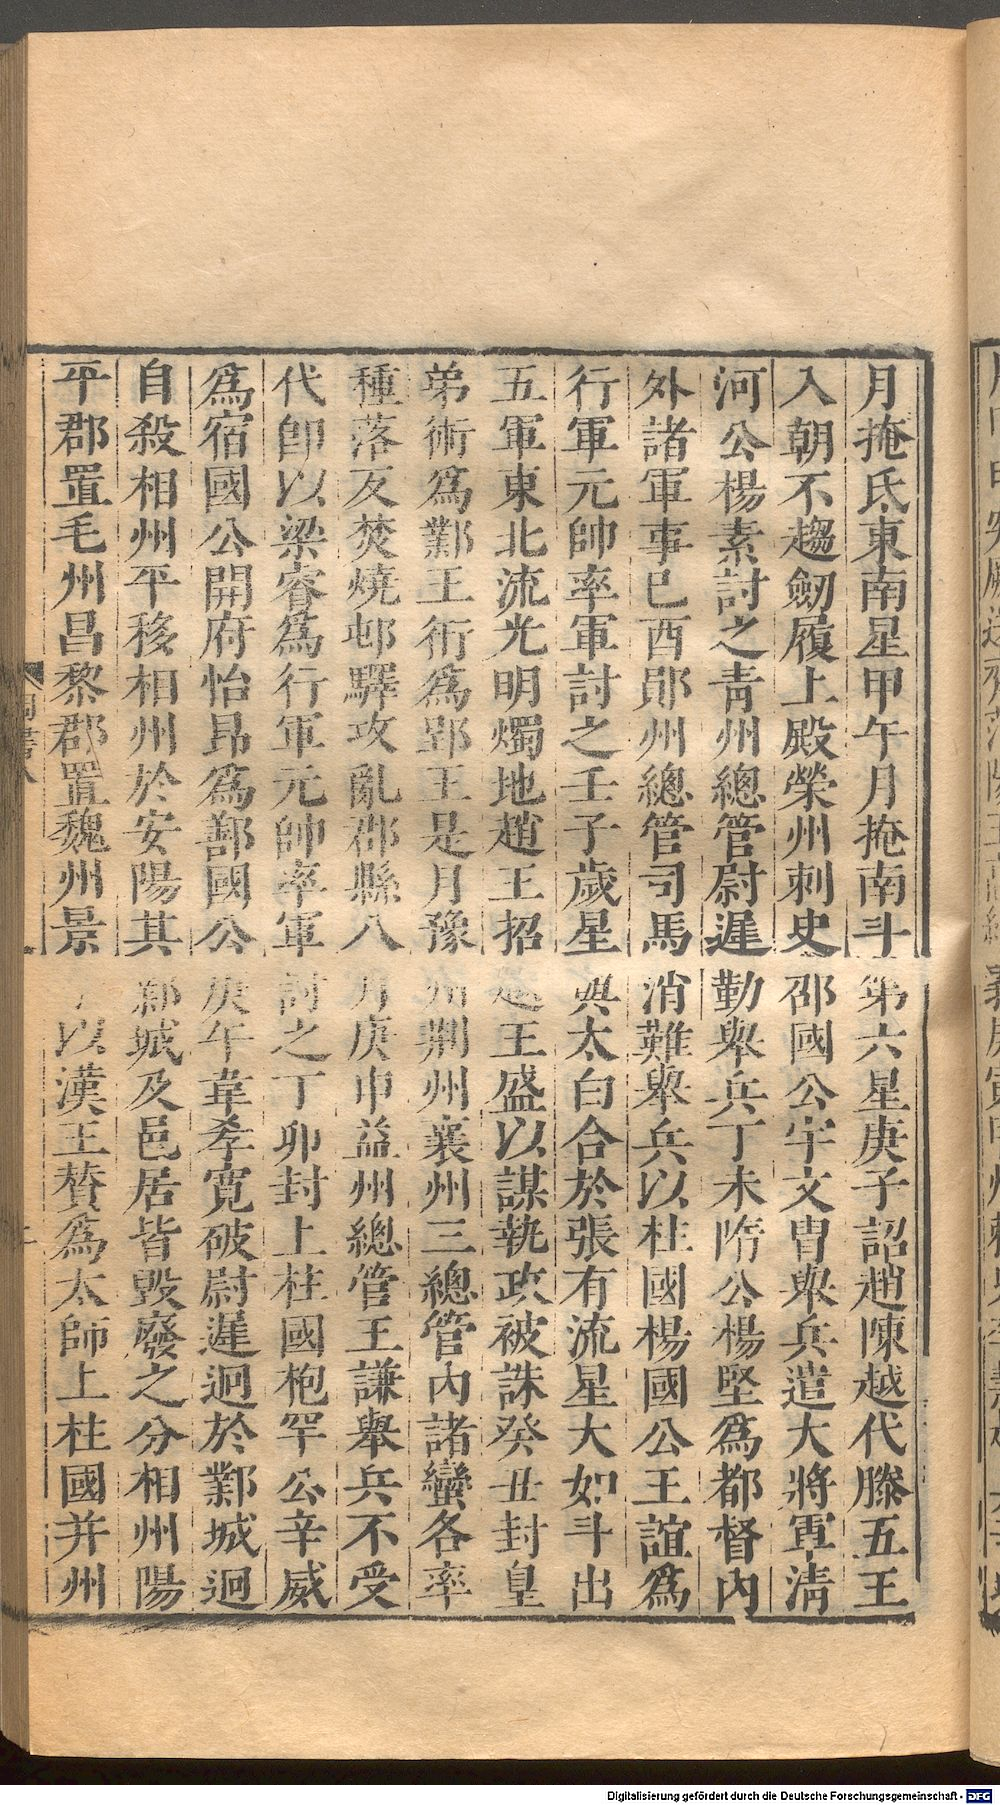 月掩氐東南星甲午月掩南斗第六星庚子詔趙陳越代滕五王
入朝不趨劒履上殿榮州刺史邵國公宇文胄舉兵遣大將軍淸
河公楊素討之靑州總管尉遲勤舉兵丁未隋公楊堅爲都督內
外諸軍事已酉鄖州總管司馬消難舉兵以柱國楊國公王誼爲
行軍元帥率軍討之壬子歲星與太白合於張有流星大如斗出
五軍東北流光明燭地趙王招越王盛以謀執政被誅癸丑封皇
弟術爲鄴王術爲郢王是月豫州荆州襄州三總管內諸蠻各率
種落反焚燒邨驛攻亂郡縣八月庚申益州總管王謙舉兵不受
代卽以梁睿爲行軍元帥率軍討之丁卯封上柱國枹罕公辛威
爲宿國公開府怡昻爲鄯國公庚午韋孝寛破尉遲迥於鄴城迥
自殺相州平移相州於安陽其鄴城及邑居皆毀廢之分相州陽
平郡置毛州昌黎郡置魏州景以漢王贊爲太師上柱國并州
周書八
Digitalisierung gefördert durch die Deutsche Forschungsgemeinschaft - DFG